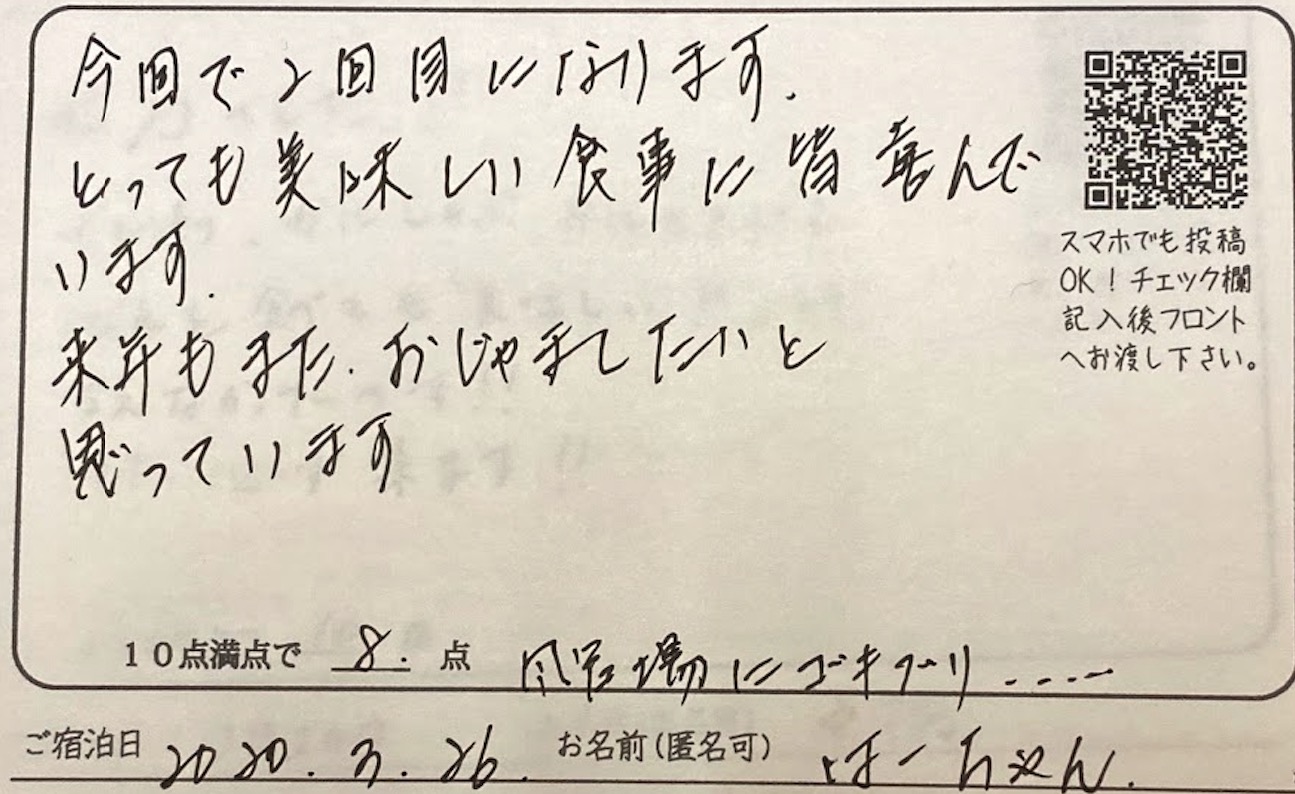 今回で2回目になります.
とっても美味しい食事に皆喜んで
います.
来年もまた.おじゃましたいと
思っています
スマホでも投稿
OK！チェック欄
記入後フロント
へお渡し下さい。
10点満点で 8. 点 風呂場にゴキブリ.....
ご宿泊日 2020.3.26. お名前(匿名可) はーちゃん.